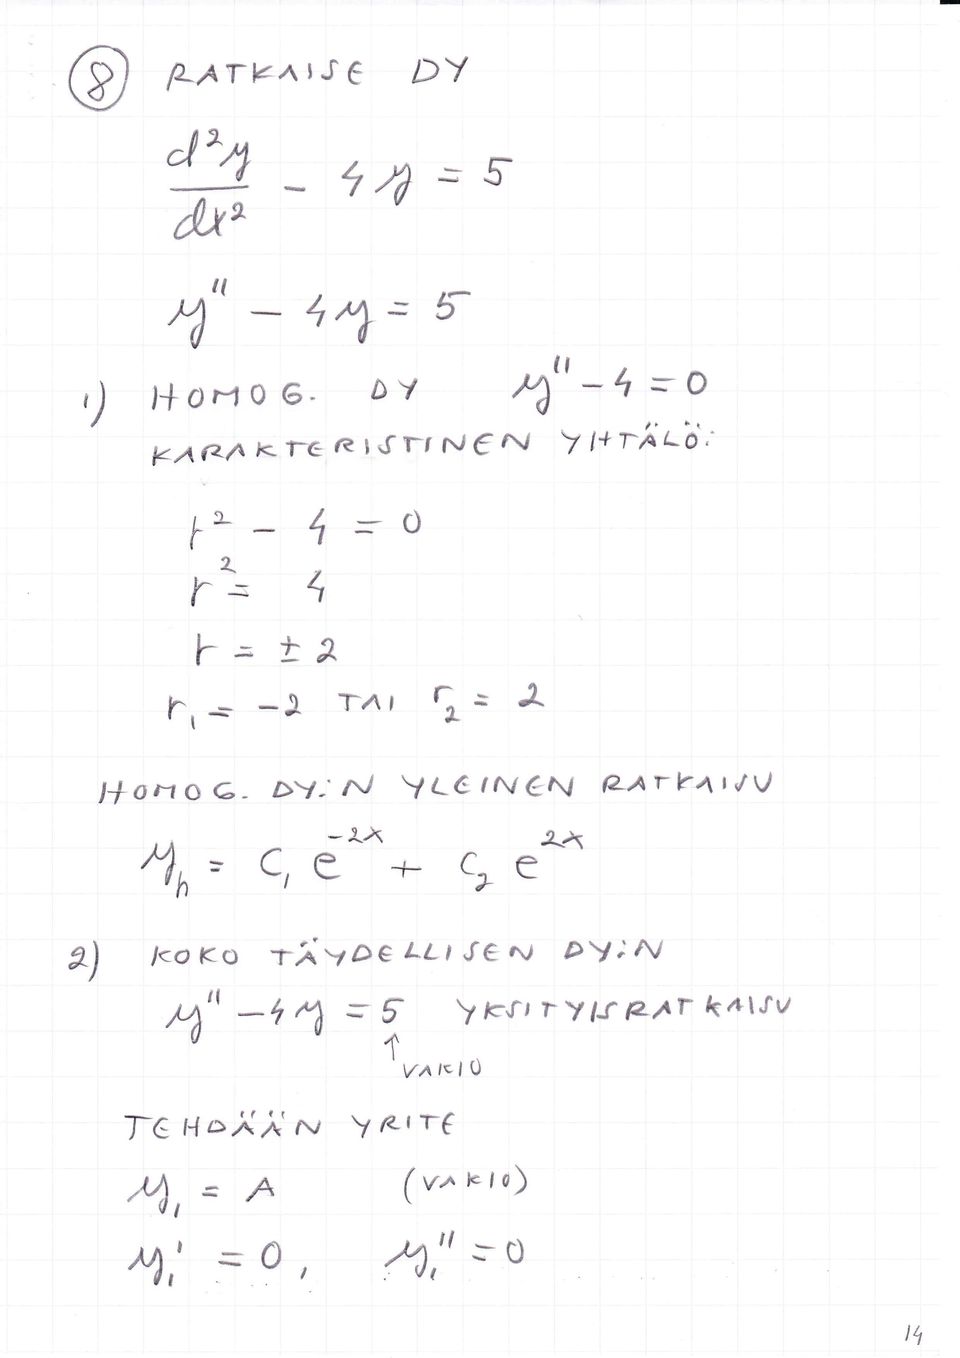 8 RATKAISE DY
d²y/dx² - 4y = 5
y'' - 4y = 5
1) HOMOG. DY y'' - 4 = 0
KARAKTERISTINEN YHTÄLÖ:
r² - 4 = 0
r² = 4
r = ± 2
r₁ = -2 TAI r₂ = 2
HOMOG. DY:N YLEINEN RATKAISU
y_h = C₁ e^(-2x) + C₂ e^(2x)
2) KOKO TÄYDELLISEN DY:N
y'' - 4y = 5 YKSITYISRATKAISU
↑ VAKIO
TEHDÄÄN YRITE
y₁ = A (VAKIO)
y₁' = 0, y₁'' = 0
14